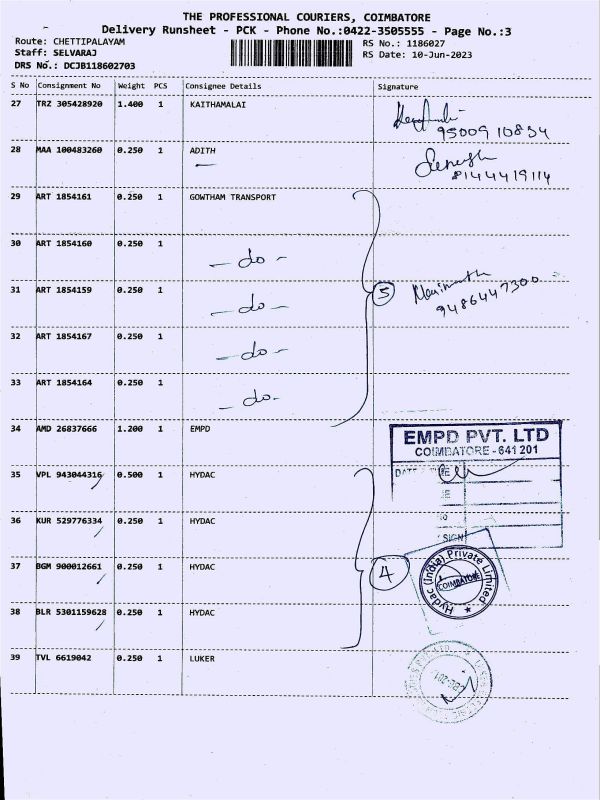 THE PROFESSIONAL COURIERS, COIMBATORE
Delivery Runsheet - PCK - Phone No.:0422-3505555 - Page No.:3
Route: CHETTIPALAYAM RS No.: 1186027
Staff: SELVARAJ RS Date: 10-Jun-2023
DRS No.: DCJB118602703
S No Consignment No Weight PCS Consignee Details Signature
27 TRZ 305428920 1.400 1 KAITHAMALAI
9500910834
28 MAA 100483260 0.250 1 ADITH
8144419114
29 ART 1854161 0.250 1 GOWTHAM TRANSPORT
30 ART 1854160 0.250 1 - do -
31 ART 1854159 0.250 1 - do - 5
9486447300
32 ART 1854167 0.250 1 - do -
33 ART 1854164 0.250 1 - do -
34 AMD 26837666 1.200 1 EMPD
EMPD PVT. LTD
COIMBATORE - 641 201
DATE
SIGN
35 VPL 943044316 0.500 1 HYDAC
36 KUR 529776334 0.250 1 HYDAC
37 BGM 900012661 0.250 1 HYDAC 4
Hydac (India) Private Limited
COIMBATORE
38 BLR 5301159628 0.250 1 HYDAC
39 TVL 6619042 0.250 1 LUKER